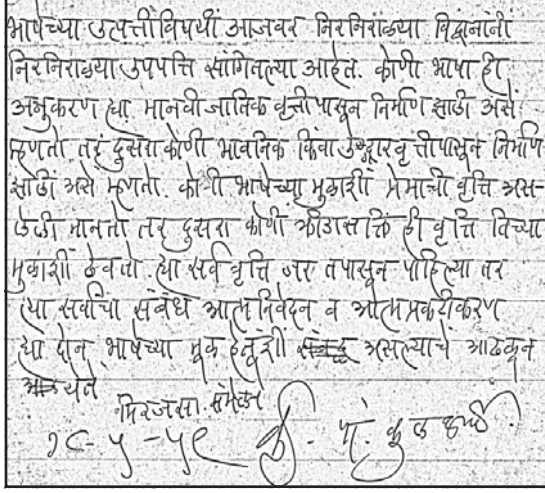 भाषेच्या उत्पत्तीविषयीं आजवर निरनिराळ्या विद्वानांनीं
निरनिराळ्या उपपत्ति सांगितल्या आहेत. कोणी भाषा ही
अनुकरण ह्या मानवी जातिक वृत्तीपासून निर्माण झाली असें
म्हणतो तर दुसरा कोणी भावनिक किंवा उद्गारवृत्तीपासून निर्माण
झाली असे म्हणतो. कोणी भाषेच्या मुळाशीं प्रेमाची वृत्ति अस-
लेली मानतो तर दुसरा कोणी क्रीडासक्ति ही वृत्ति तिच्या
मुळाशीं ठेवतो. ह्या सर्व वृत्ति जर तपासून पाहिल्या तर
त्या सर्वांचा संबंध आत्मनिवेदन व आत्मप्रकटीकरण
ह्या दोन भाषेच्या मूळ हेतूंशीं असल्याचें आढळून
येतें
मिरज सा. संमेलन
कृ. पां. कुळकर्णी